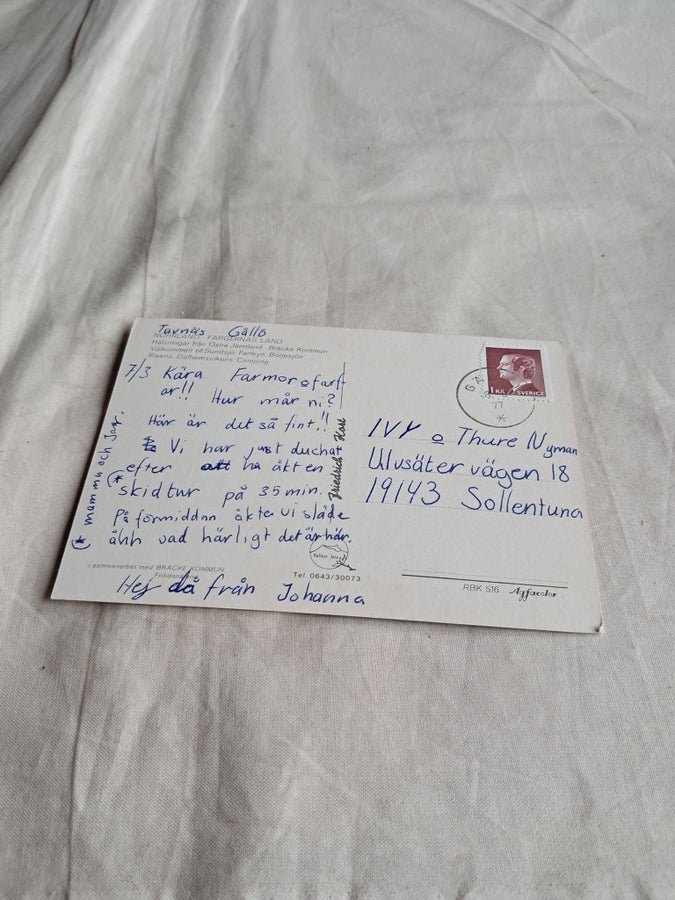 Tavnäs Gällö
NORRLAND - FÄRGERNAS LAND
Hälsningar från Östra Jämtland - Bräcke Kommun
Välkommen till Sundsjö, Fanbyn, Börjesjön
Rissna. Dalhemsvikens Camping
7/3 Kära Farmor o farf-
ar!! Hur mår ni?
Här är det så fint!!
Vi har just duchat
efter att ha åkt en (*
skidtur på 35 min.
På förmiddan åkte vi släde
åhh vad härligt det är här.
(* mamma och Jag.
i samarbetet med BRÄCKE KOMMUN
Fritidsnämnd
Hej då från Johanna
Friedrich Karl
Tel. 0643/30073
GÄ
77
1 KR SVERIGE
IVY o Thure Nyman
Ulvsätervägen 18
19143 Sollentuna
RBK 516 Agfacolor